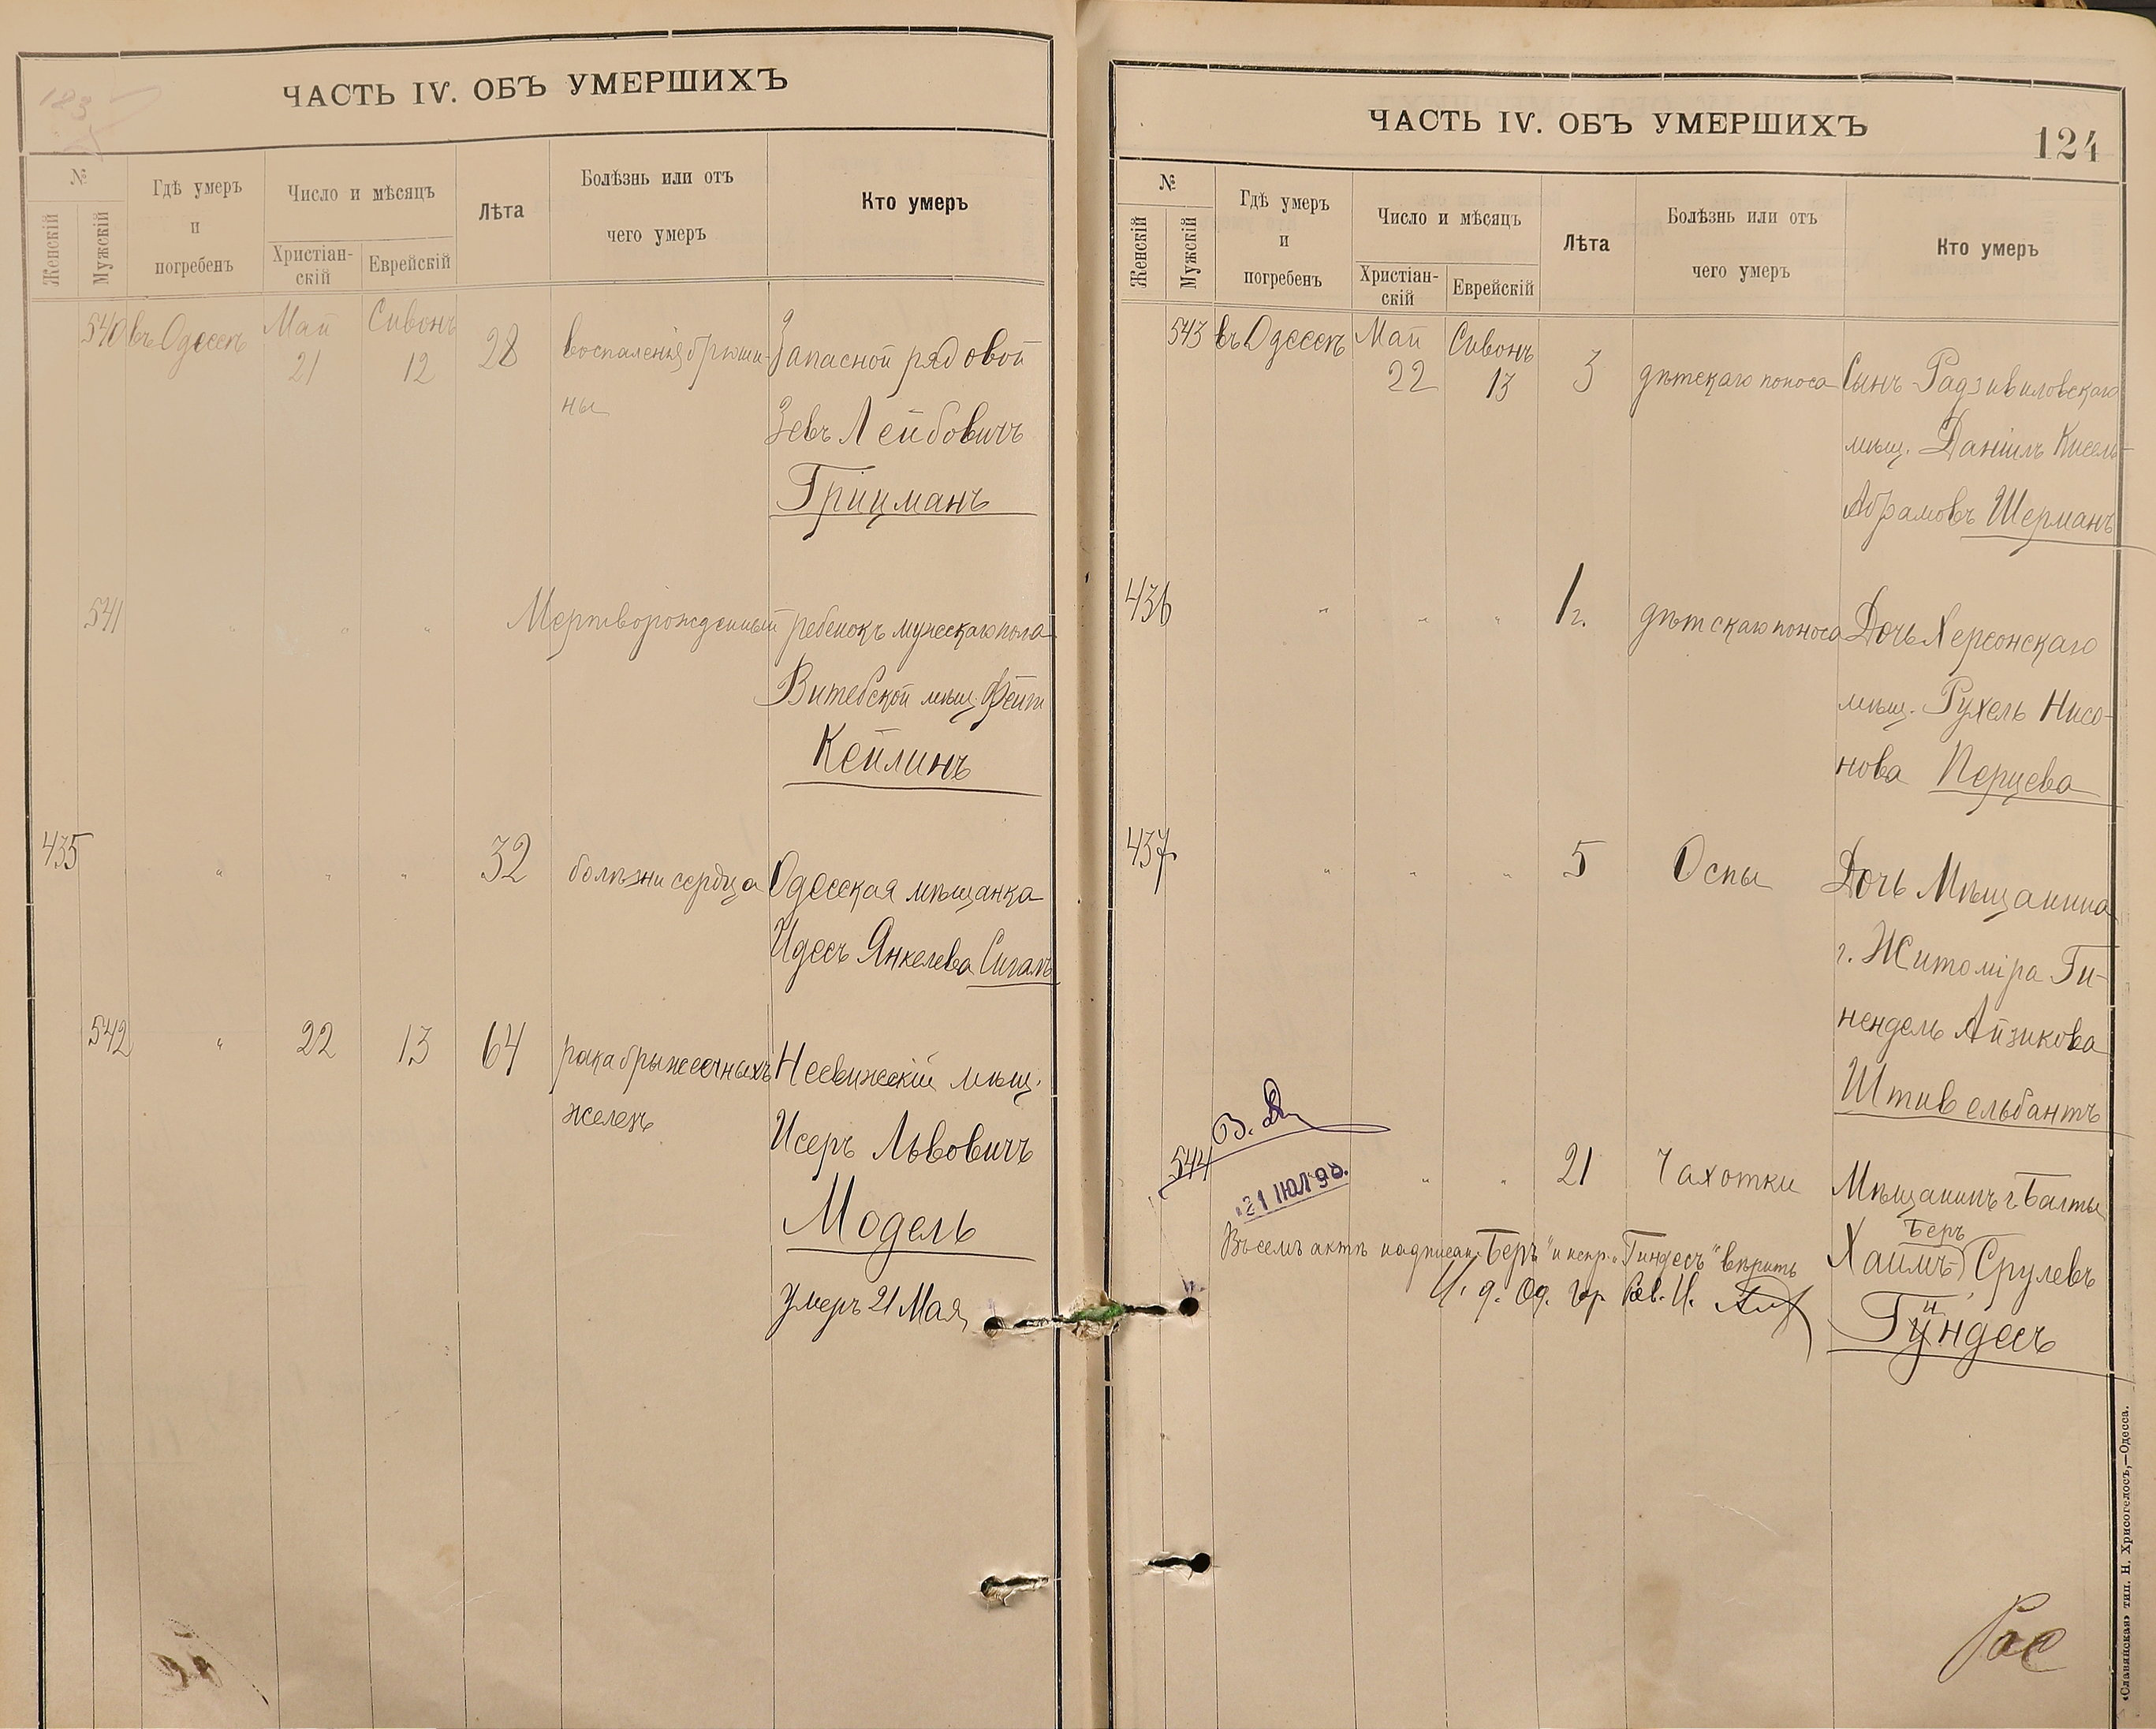 ЧАСТЬ IV. ОБЪ УМЕРШИХЪ
№
Женскій
Мужскій
Гдѣ умеръ
и
погребенъ
Число и мѣсяцъ
Христіан-
скій
Еврейскій
Лѣта
Болѣзнь или отъ
чего умеръ
Кто умеръ
540 въ Одессѣ Май Сивонъ
21 12 28 воспаленія брюши- Запасной рядовой
ны
Зевъ Лейбовичъ
Грицманъ
541 " " " Мертворожденный ребенокъ мужескаго пола
Витебской мѣщ. Фейги
Кейлинъ
435 " " " 32 болѣзни сердца Одесская мѣщанка
Идесъ Янкелева Сигалъ
542 " 22 13 64 рака брыжеечныхъ Несвижскій мѣщ.
железъ
Исеръ Львовичъ
Модель
Умеръ 21 Мая
ЧАСТЬ IV. ОБЪ УМЕРШИХЪ
124
№
Женскій
Мужскій
Гдѣ умеръ
и
погребенъ
Число и мѣсяцъ
Христіан-
скій
Еврейскій
Лѣта
Болѣзнь или отъ
чего умеръ
Кто умеръ
543 въ Одессѣ Май Сивонъ
22 13 3 дѣтскаго поноса Сынъ Радзивиловскаго
мѣщ. Даніилъ Кисель-
Абрамовъ Шерманъ
436 " " " 1 г. дѣтскаго поноса Дочь Херсонскаго
мѣщ. Рухель Нисо-
нова Перцева
437 " " " 5 Оспы Дочь Мѣщанина
г. Житоміра Ги-
нендель Айзикова
Штивельбантъ
544 " " 21 Чахотки Мѣщанинъ г. Балты
21 ІЮЛ 98.
Беръ
Хаимъ Срулевъ
Въ семъ актѣ надписан. „Беръ" и испр. „Гиндесъ" вѣрить
И. д. Од. Гор. Рав. И.
Гиндесъ
«Славянская» тип. Н. Хрисогелосъ,—Одесса.